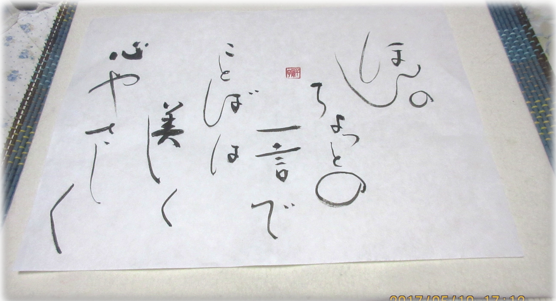 ほんの
ちょっとの
一言で
ことばは
美しく
心やさしく